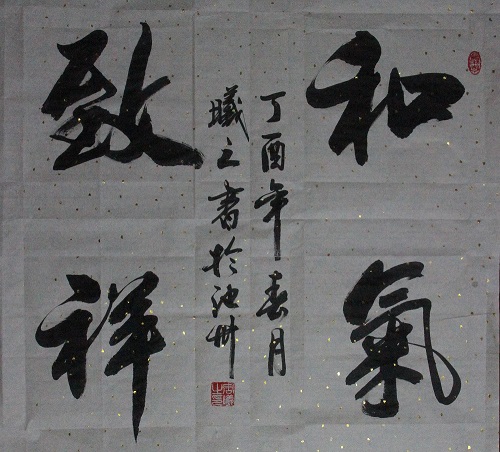 和氣
致祥
丁酉年春月
曦之書於池州